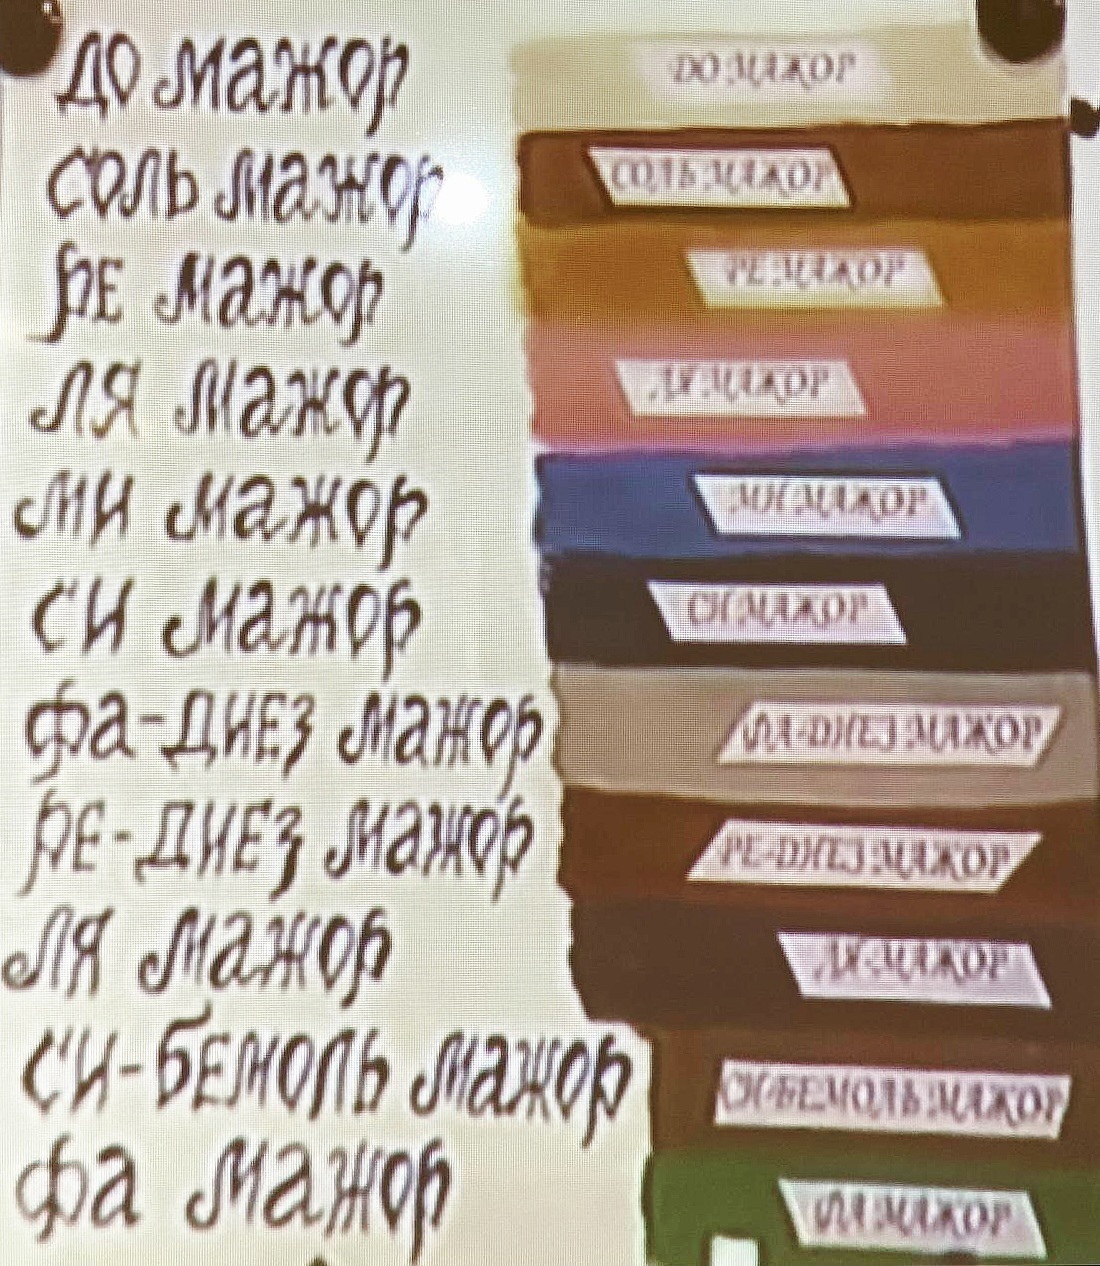 ДО мажор
ДО МАЖОР
СОЛЬ мажор
СОЛЬ МАЖОР
РЕ мажор
РЕ МАЖОР
ЛЯ мажор
ЛЯ МАЖОР
МИ мажор
МИ МАЖОР
СИ мажор
СИ МАЖОР
ФА-ДИЕЗ мажор
ФА-ДИЕЗ МАЖОР
РЕ-ДИЕЗ мажор
РЕ-ДИЕЗ МАЖОР
ЛЯ мажор
ЛЯ МАЖОР
СИ-БЕМОЛЬ мажор
СИ-БЕМОЛЬ МАЖОР
ФА мажор
ФА МАЖОР